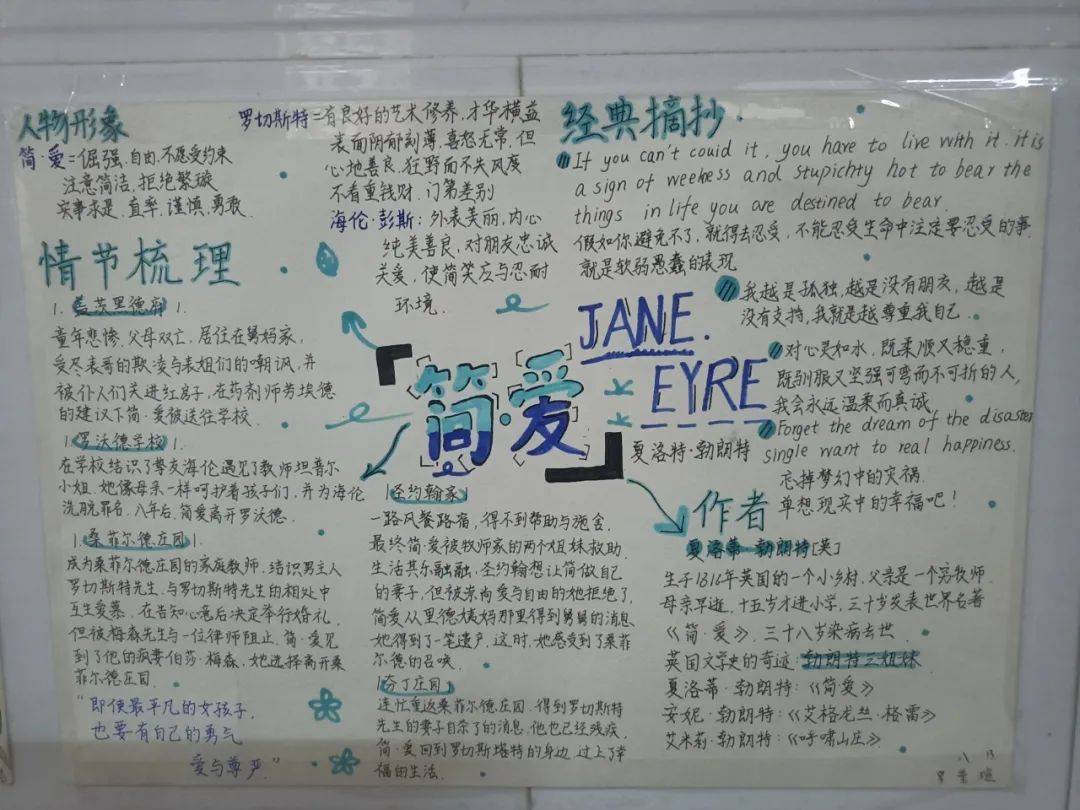 人物形象
简·爱=倔强,自由,不愿受约束
注意简洁,拒绝繁璇
实事求是,直率,谨慎,勇敢.
罗切斯特=有良好的艺术修养,才华横益
表面阴郁刻薄,喜怒无常,但
心地善良,狂野而不失风度
不看重钱财.门第差别
海伦·彭斯:外表美丽,内心
纯美善良,对朋友忠诚
关爱,使简笑应与忍耐
环境.
情节梳理
1.盖茨里德府1.
童年悲惨,父母双亡,居住在舅妈家,
受尽表哥的欺凌与表姐们的嘲讽,并
被仆人们关进红房子,在药剂师劳埃德
的建议下简·爱被送往学校.
1罗沃德学校1.
在学校结识了挚友海伦遇见了教师坦普尔
小姐.她像母亲一样呵护着孩子们,并为海伦
洗脱罪名.八年后,简爱离开罗沃德.
1.桑菲尔德庄园1.
成为桑菲尔德庄园的家庭教师,结识男主人
罗切斯特先生,与罗切斯特先生的相处中
互生爱慕,在告知心意后决定举行婚礼,
但被梅森先生与一位律师阻止,简·爱见
到了他的疯妻伯莎·梅森,她选择离开桑
菲尔德庄园.
“即使最平凡的女孩子,
也要有自己的勇气
爱与尊严.”
简·爱
JANE.
EYRE
夏洛特·勃朗特
1圣约翰家1
一路风餐路宿,得不到帮助与施舍,
最终简·爱被牧师家的两个姐妹救助.
生活其乐融融,圣约翰想让简做自己
的妻子,但被崇尚爱与自由的她拒绝了,
简爱从里德姨妈那里得到舅舅的消息
她得到了一笔遗产,这时,她感受到了桑菲
尔德的召唤.
1芬丁庄园1
连忙重返桑菲尔德庄园,得到罗切斯特
先生的妻子自杀了的消息,他也已经残疾,
简·爱回到罗切斯堪特的身边,过上了幸
福的生活.
经典摘抄
If you can't couid it, you have to live with it. it is
a sign of weekess and stupichty hot to bear the
things in life you are destined to bear.
假如你避免不了,就得去忍受,不能忍受生命中注定要忍受的事
就是软弱愚蠢的表现
我越是孤独,越是没有朋友,越是
没有支持,我就是越尊重我自己.
对心灵和水,既柔顺又稳重,
既驯服又坚强可弯而不可折的人,
我会永远温柔而真诚
Forget the dream of the disaster
single want to real happiness.
忘掉梦幻中的灾祸
单想现实中的幸福吧!
作者
夏洛蒂·勃朗特[英]
生于1816年英国的一个小乡村,父亲是一个穷牧师.
母亲早逝,十五岁才进小学,三十岁发表世界名著
《简·爱》,三十八岁染病去世.
英国文学史的奇迹:勃朗特三姐妹
夏洛蒂·勃朗特:《简爱》
安妮·勃朗特:《艾格龙丝·格雷》
艾米莉·勃朗特:《呼啸山庄》